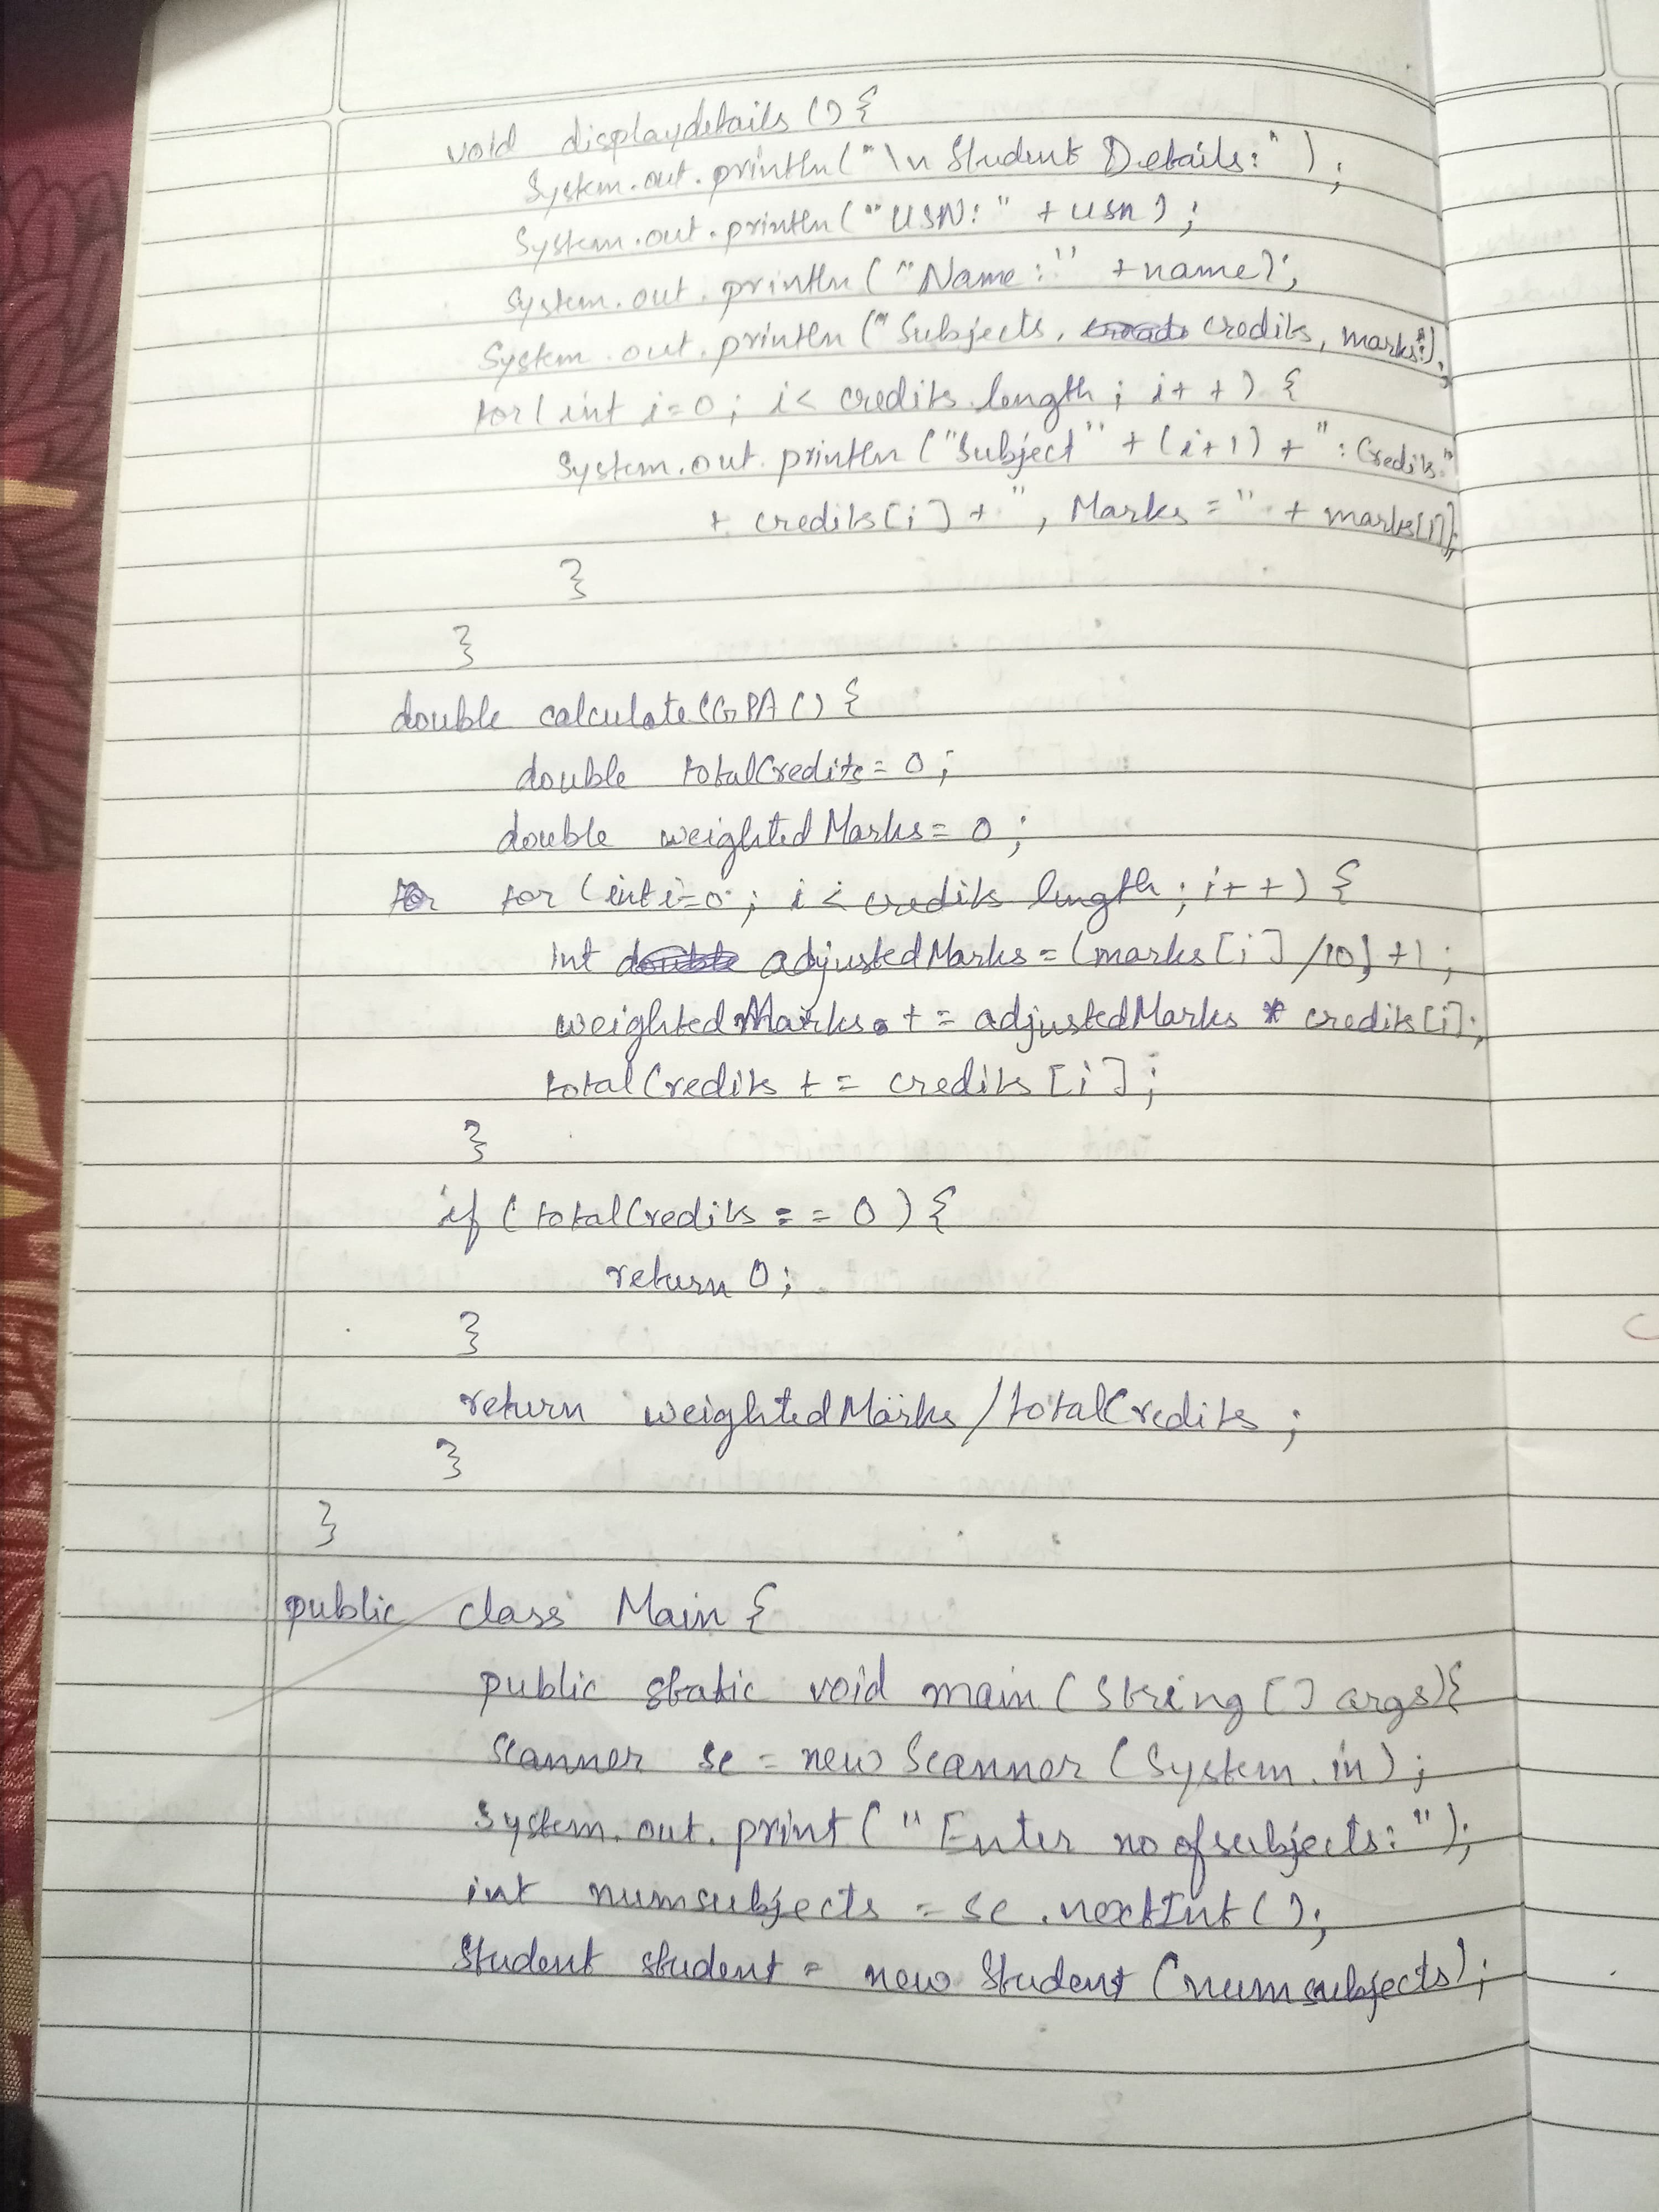 void displaydetails () {
System.out.println("\n Student Details:");
System.out.println("USN:" + usn);
System.out.println("Name:" + name);
System.out.println("Subjects, credits, marks:");
for(int i=0; i< credits.length; i++) {
System.out.println("Subject" + (i+1) + ": Credits:"
+ credits[i] + ", Marks =" + marks[i]);
}
}
double calculateSGPA() {
double totalCredits = 0;
double weightedMarks = 0;
for (int i=0; i< credits length; i++) {
int adjustedMarks = (marks[i] /10) +1;
weightedMarks += adjustedMarks * credits[i];
totalCredits += credits[i];
}
if (totalCredits == 0) {
return 0;
}
return weightedMarks/totalCredits;
}
}
public class Main {
public static void main(String [] args){
Scanner sc = new Scanner (System.in);
System.out.print("Enter no of subjects:");
int numsubjects = sc.nextInt();
Student student = new Student (numsubjects);